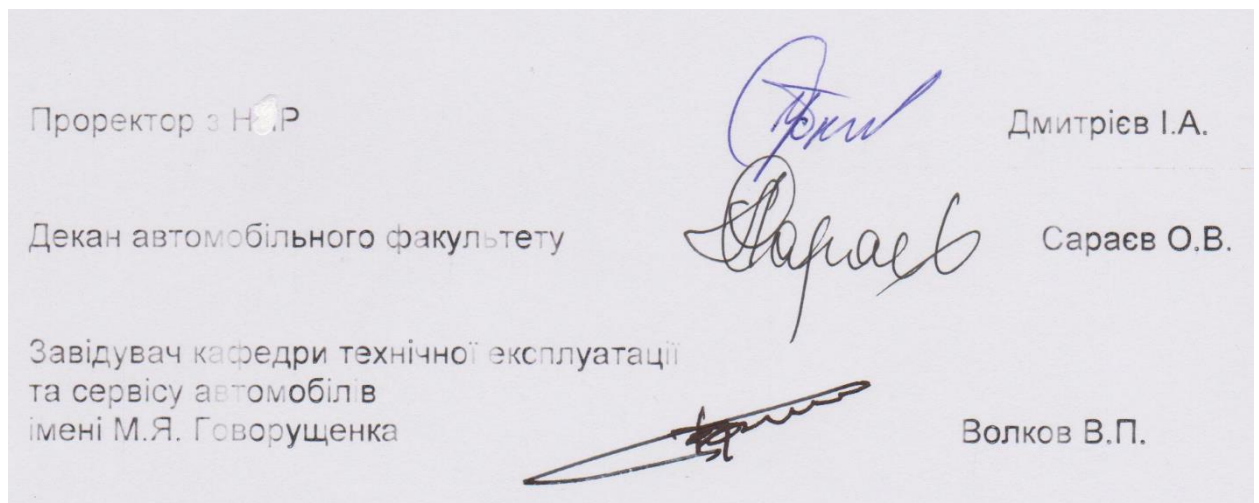 Проректор з НР Дмитрієв І.А.
Декан автомобільного факультету Сараєв О.В.
Завідувач кафедри технічної експлуатації
та сервісу автомобілів
імені М.Я. Говорущенка Волков В.П.